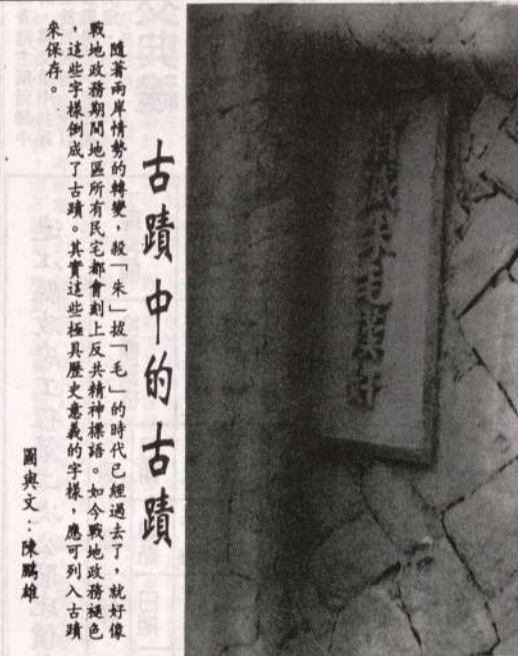 消滅朱毛漢奸
古蹟中的古蹟
隨著兩岸情勢的轉變，殺「朱」拔「毛」的時代已經過去了，就好像
戰地政務期間地區所有民宅都會刻上反共精神標語。如今戰地政務褪色
，這些字樣倒成了古蹟。其實這些極具歷史意義的字樣，應可列入古蹟
來保存。
圖與文：陳鵬雄